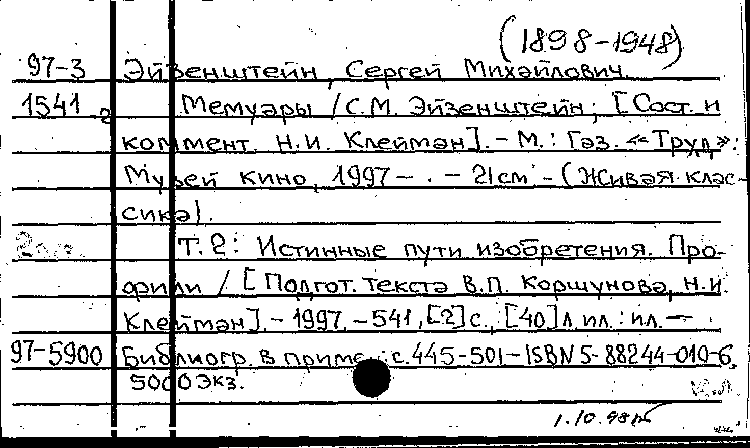 (1898-1948)
97-3 Эйзенштейн, Сергей Михайлович.
1541 2 Мемуары / С.М. Эйзенштейн; [Сост. и
коммент. Н.И. Клейман]. - М.: Газ. «Труд»:
Музей кино, 1997 - . - 21 см - (Живая клас-
сика).
Т. 2: Истинные пути изобретения. Про-
фили / [Подгот. текста В.П. Коршунова, Н.И.
Клейман]. - 1997. - 541, [2] с., [40] л. ил.: ил. -
97-5900 Библиогр. в примеч.: с. 445-501 - ISBN 5-88244-010-6.
5000 экз.
1.10.98